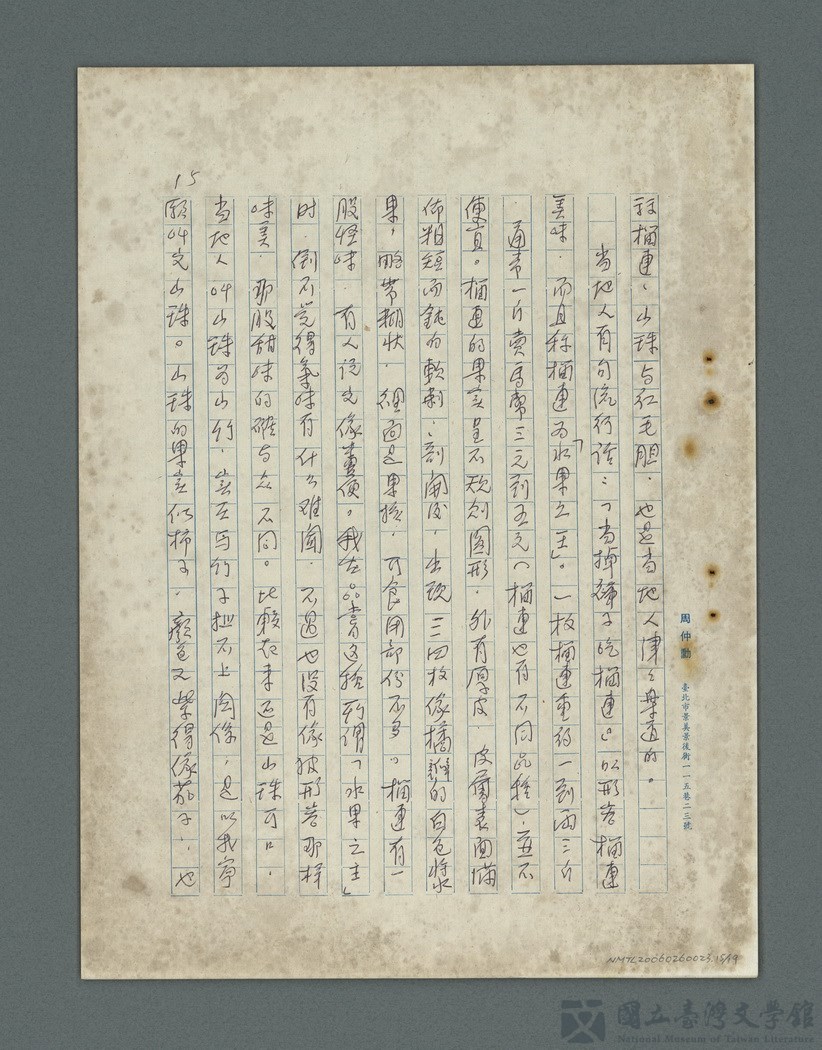 過榴槤、山球与红毛胆,也是当地人津々樂道的。
当地人有句流行话:「当掉褲子吃榴槤」以形容榴槤
美味,而且称榴槤为「水果之王」。一枚榴槤重约一到兩三斤
,通常一斤賣馬幣三元到五元(榴槤也有不同品種),並不
便宜。榴槤的果实呈不规则圆形,外有厚皮,皮層表面满
佈粗短而鈍的軟刺,剖開後,出现三四枚像橘瓣的白色漿
果,略带糊状,裡面是果核,可食用部份不多。榴槤有一
股怪味,有人说它像糞便。我在品嘗这种所谓「水果之王」
时,倒不觉得氣味有什么难闻,不過也没有像被形容那样
味美,那股甜味的確与众不同。比較起来还是山球可口,
当地人叫山球为山竹,其实与竹子扯不上関係,是以我寧
願叫它山球。山球的果实似柿子,顏色又紫得像茄子,也
15
周仲勳
臺北市景美景後街一一五巷二三號
NMTL20060260023 15/19
國立臺灣文學館
National Museum of Taiwan Literature